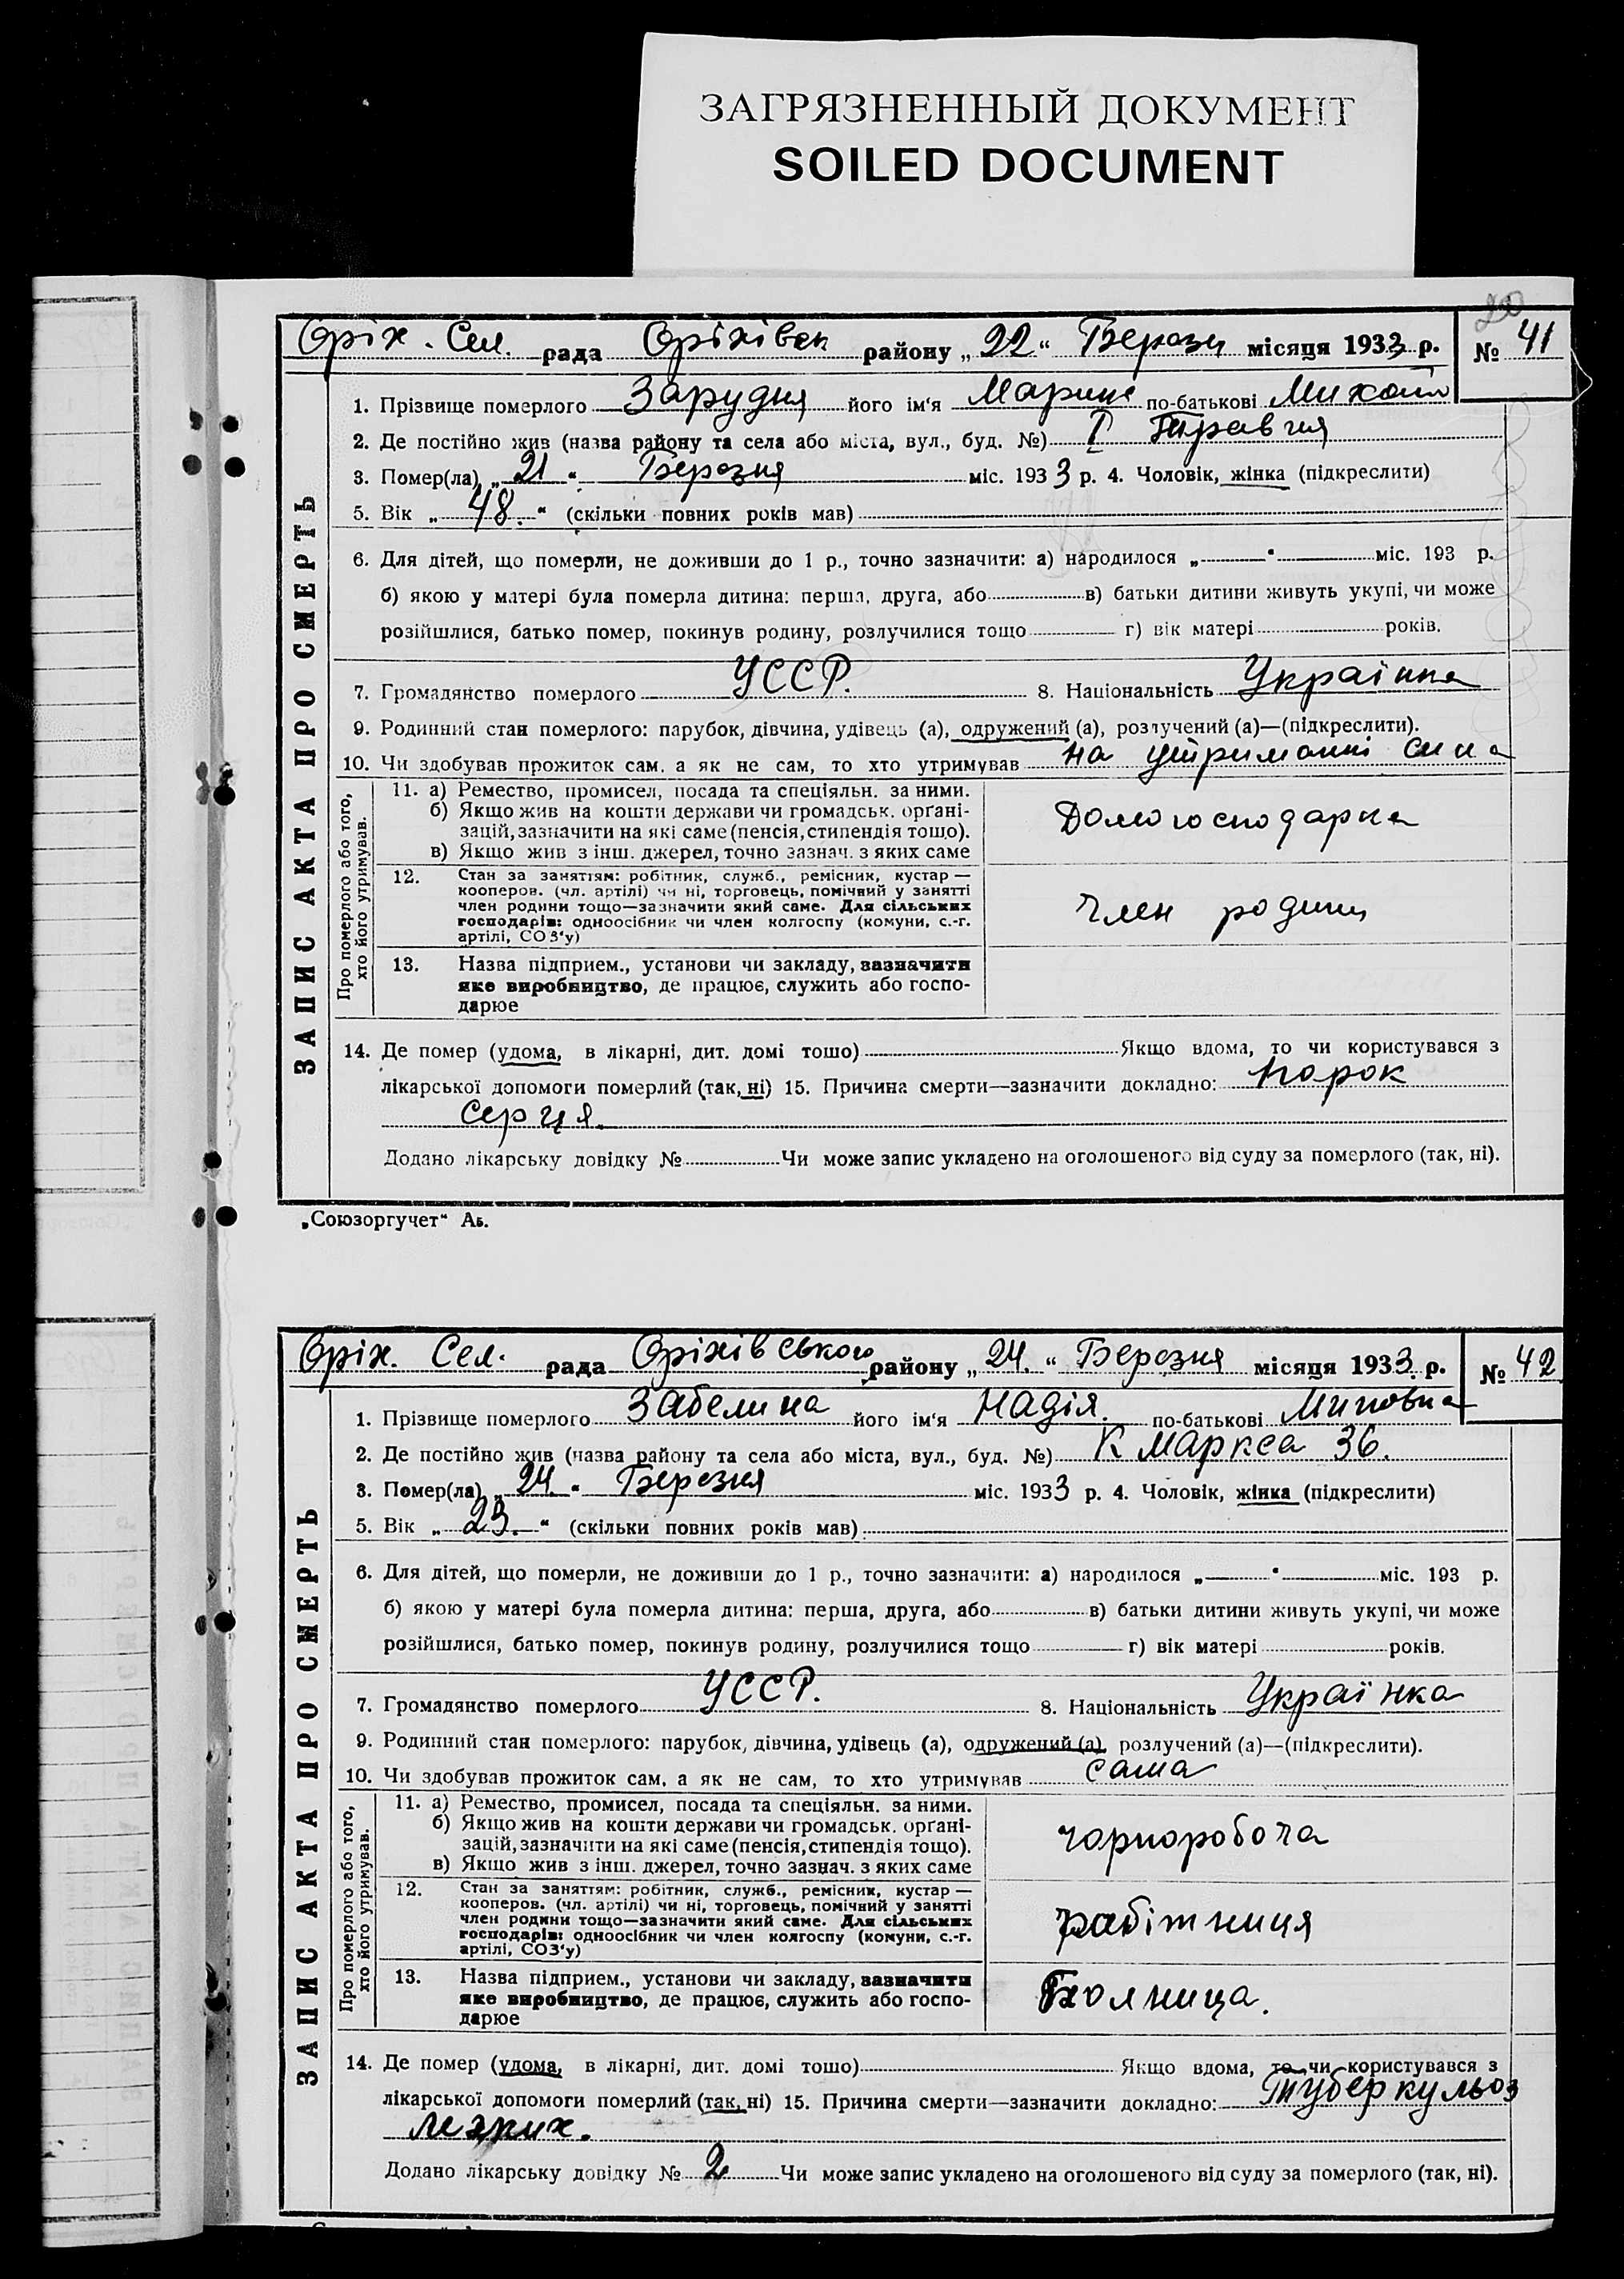 ЗАГРЯЗНЕННЫЙ ДОКУМЕНТ
SOILED DOCUMENT
20
Оріх. Сел. рада Оріхівск району „22“ Березн місяця 1933 р. № 41
ЗАПИС АКТА ПРО СМЕРТЬ
1. Прізвище померлого Зарудня його ім'я Марина по-батькові Михайл
2. Де постійно жив (назва району та села або міста, вул., буд. №) I Травня
3. Помер(ла) „21“ Березня міс. 1933 р. 4. Чоловік, жінка (підкреслити)
5. Вік „48.“ (скільки повних років мав)
6. Для дітей, що померли, не доживши до 1 р., точно зазначити: а) народилося „ “ міс. 193 р.
б) якою у матері була померла дитина: перша, друга, або в) батьки дитини живуть укупі, чи може
розійшлися, батько помер, покинув родину, розлучилися тощо г) вік матері років.
7. Громадянство померлого УССР. 8. Національність Українка
9. Родинний стан померлого: парубок, дівчина, удівець (а), одружений (а), розлучений (а)—(підкреслити).
10. Чи здобував прожиток сам, а як не сам, то хто утримував на утриманні сина
Про померлого або того, хто його утримував.
11. а) Ремество, промисел, посада та спеціяльн. за ними.
б) Якщо жив на кошти держави чи громадськ. орґані-
зацій, зазначити на які саме (пенсія, стипендія тощо).
в) Якщо жив з інш. джерел, точно зазнач. з яких саме
Домогосподарка
12. Стан за заняттям: робітник, служб., ремісник, кустар —
кооперов. (чл. артілі) чи ні, торговець, помічний у занятті
член родини тощо—зазначити який саме. Для сільських
господарів: одноосібник чи член колгоспу (комуни, с.-г.
артілі, СОЗ'у)
Член родини
13. Назва підприєм., установи чи закладу, зазначити
яке виробництво, де працює, служить або госпо-
дарює
14. Де помер (удома, в лікарні, дит. домі тощо) Якщо вдома, то чи користувався з
лікарської допомоги померлий (так, ні) 15. Причина смерти—зазначити докладно: порок
серця.
Додано лікарську довідку № Чи може запис укладено на оголошеного від суду за померлого (так, ні).
„Союзоргучет“ Аб.
Оріх. Сел. рада Оріхівського району „24.“ Березня місяця 1933. р. № 42
ЗАПИС АКТА ПРО СМЕРТЬ
1. Прізвище померлого Забелина його ім'я Надія. по-батькові
2. Де постійно жив (назва району та села або міста, вул., буд. №) К Маркса 36.
3. Помер(ла) „24.“ Березня міс. 1933 р. 4. Чоловік, жінка (підкреслити)
5. Вік „23.“ (скільки повних років мав)
6. Для дітей, що померли, не доживши до 1 р., точно зазначити: а) народилося „ “ міс. 193 р.
б) якою у матері була померла дитина: перша, друга, або в) батьки дитини живуть укупі, чи може
розійшлися, батько помер, покинув родину, розлучилися тощо г) вік матері років.
7. Громадянство померлого УССР. 8. Національність Українка
9. Родинний стан померлого: парубок, дівчина, удівець (а), одружений (а), розлучений (а)—(підкреслити).
10. Чи здобував прожиток сам, а як не сам, то хто утримував сама
Про померлого або того, хто його утримував.
11. а) Ремество, промисел, посада та спеціяльн. за ними.
б) Якщо жив на кошти держави чи громадськ. орґані-
зацій, зазначити на які саме (пенсія, стипендія тощо).
в) Якщо жив з інш. джерел, точно зазнач. з яких саме
чорноробоча
12. Стан за заняттям: робітник, служб., ремісник, кустар —
кооперов. (чл. артілі) чи ні, торговець, помічний у занятті
член родини тощо—зазначити який саме. Для сільських
господарів: одноосібник чи член колгоспу (комуни, с.-г.
артілі, СОЗ'у)
рабітниця
13. Назва підприєм., установи чи закладу, зазначити
яке виробництво, де працює, служить або госпо-
дарює
14. Де помер (удома, в лікарні, дит. домі тощо) Якщо вдома, то чи користувався з
лікарської допомоги померлий (так, ні) 15. Причина смерти—зазначити докладно: Туберкульоз
легких.
Додано лікарську довідку № 2 Чи може запис укладено на оголошеного від суду за померлого (так, ні).